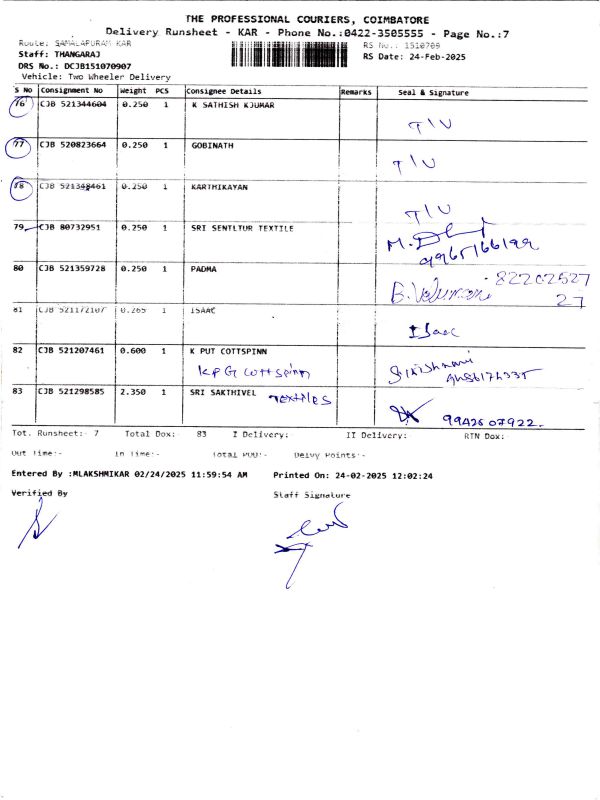 THE PROFESSIONAL COURIERS, COIMBATORE
Delivery Runsheet - KAR - Phone No.:0422-3505555 - Page No.:7
Route: SAMALAPURAM KAR RS No.: 1510709
Staff: THANGARAJ RS Date: 24-Feb-2025
DRS No.: DCJB151070907
Vehicle: Two Wheeler Delivery
S No Consignment No Weight PCS Consignee Details Remarks Seal & Signature
76 CJB 521344604 0.250 1 K SATHISH KJUMAR
T/U
77 CJB 520823664 0.250 1 GOBINATH
T/U
78 CJB 521348461 0.250 1 KARTHIKAYAN
T/U
79 CJB 80732951 0.250 1 SRI SENTLTUR TEXTILE
80 CJB 521359728 0.250 1 PADMA
82202527
27
81 CJB 521172107 0.265 1 ISAAC
Isaac
82 CJB 521207461 0.600 1 K PUT COTTSPINN
KPG Cottspinn
83 CJB 521298585 2.350 1 SRI SAKTHIVEL Textiles
9942607922.
Tot. Runsheet:- 7 Total Dox:- 83 I Delivery: II Delivery: RTN Dox:-
Out Time:- In Time:- Total POD:- Delvy Points:-
Entered By :MLAKSHMIKAR 02/24/2025 11:59:54 AM Printed On: 24-02-2025 12:02:24
Verified By Staff Signature